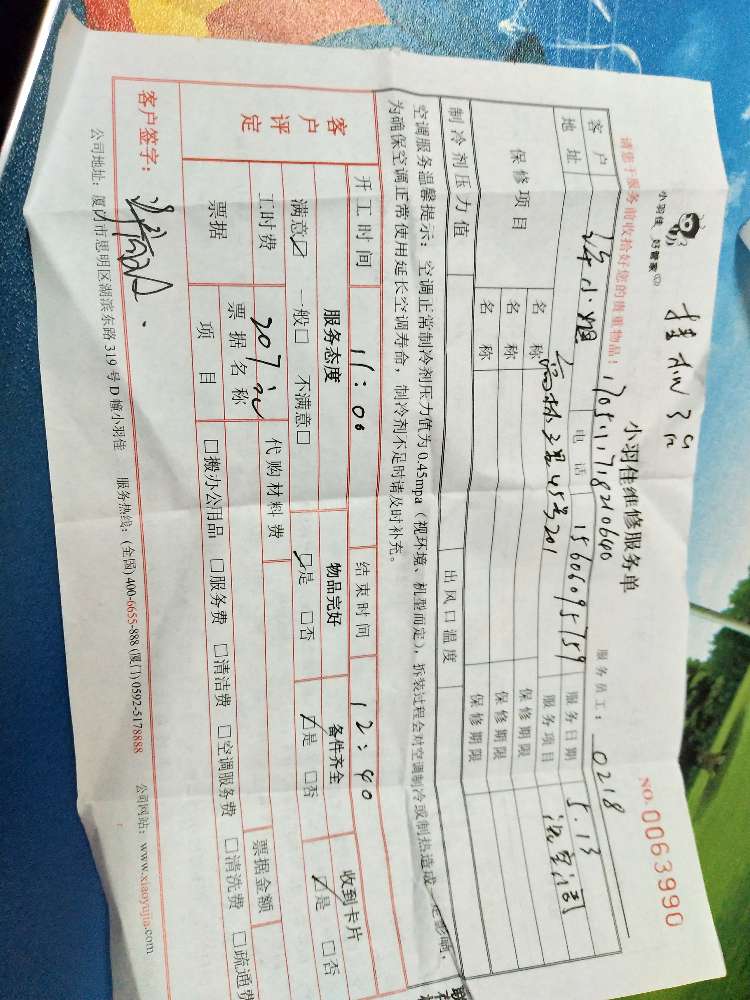 小羽佳 好管家
挂机3台
小羽佳维修服务单
NO.0063990
请您于服务前收拾好您的贵重物品!
170511718210640
服务员工: 0218
客户 小姐 电话 15606095759 服务日期 5.13
地址 高林 45号201 服务项目 洗空调
保修项目 名称 保修期限
名称 保修期限
名称 保修期限
制冷剂压力值 出风口温度
空调服务温馨提示: 空调正常制冷剂压力值为0.45mpa (视环境、机型而定), 拆装过程会对空调制冷或制热造成一定影响,
为确保空调正常使用延长空调寿命, 制冷剂不足时请及时补充。
客户评定
开工时间 11:00 结束时间 12:40
服务态度 物品完好 备件齐全 收到卡片
满意☑ 一般□ 不满意□ ☑是 □否 ☑是 □否 ☑是 □否
工时费 207元 代购材料费
票据 票据名称 票据金额
项目 □搬办公用品 □服务费 □清洁费 □空调服务费 □清洗费 □疏通费
客户签字:
公司地址: 厦门市思明区湖滨东路319号D幢小羽佳 服务热线: (全国) 400-6655-888 (厦门) 0592-5178888 公司网站: www.xiaoyujia.com